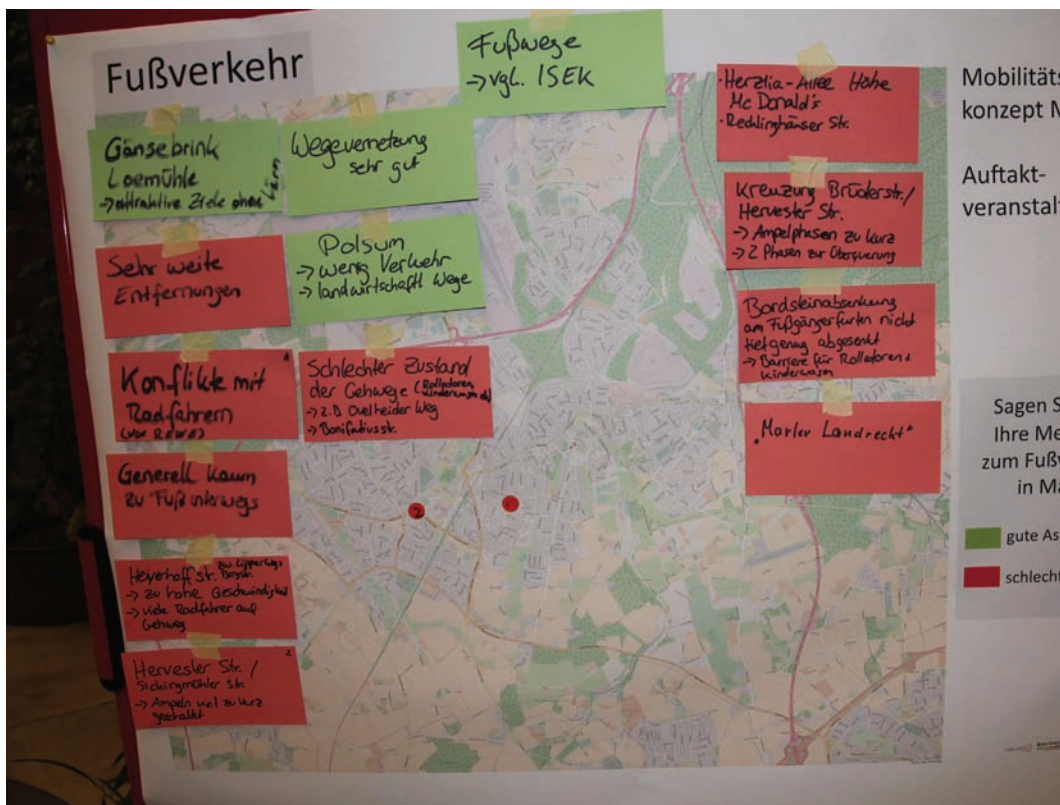 Fußverkehr
Fußwege
→ vgl. ISEK
Gänsebrink
Loemühle
→ attraktive Ziele ohne Lärm
Wegevernetzung
sehr gut
Sehr weite
Entfernungen
Polsum
→ wenig Verkehr
→ landwirtschaftl Wege
Konflikte mit
Radfahrern
(vor REWE)
Schlechter Zustand
der Gehwege (Rollatoren,
Kinderwagen
→ z.B Ovelheider Weg
→ Bonifatiusstr.
Generell kaum
zu Fuß unterwegs
Heyerhoffstr. zw. Lipperweg
→ zu hohe Geschwindigkeit
→ viele Radfahrer auf
Gehweg
2
Hervester Str. /
Sickingmühler Str.
→ Ampeln viel zu kurz
geschaltet
2
· Herzlia-Allee Höhe
Mc Donald's
· Recklinghäuser Str.
Kreuzung Brüderstr./
Hervester Str.
→ Ampelphasen zu kurz
→ 2 Phasen zur Überquerung
Bordsteinabsenkung
am Fußgängerfurten nicht
tief genug abgesenkt
→ Barriere für Rollatoren +
Kinderwagen
"Marler Landrecht"
Mobilitäts
konzept M
Auftakt-
veranstalt
Sagen S
Ihre Me
zum Fußv
in Ma
gute As
schlecht